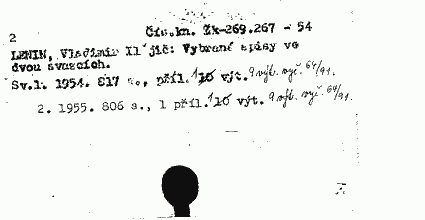 2
Čís.kn. Žk-269.267 - 54
LENIN, Vladimir Il'jič: Vybrané spisy ve
dvou svazcích.
Sv.1. 1954. 817 s., příl. 10 výt. 9 výt. vyř. 64/91.
2. 1955. 806 s., 1 příl. 10 výt. 9 výt. vyř. 64/91.